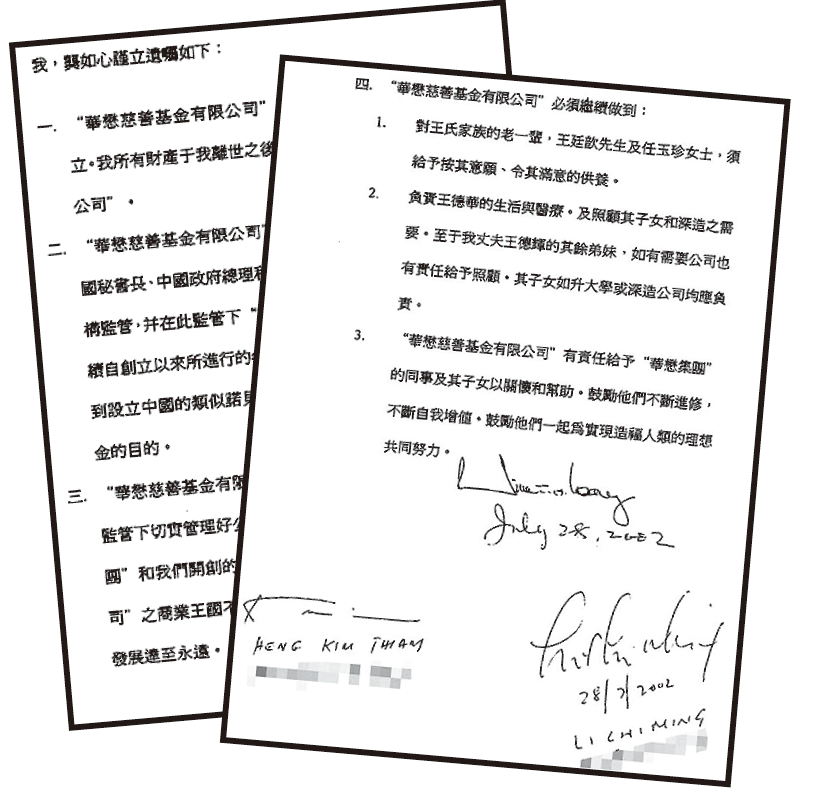 我，龔如心謹立遺囑如下：
一. “華懋慈善基金有限公司”
立。我所有財產于我離世之後
公司”。
二. “華懋慈善基金有限公司”
國秘書長、中國政府總理和
構監管，并在此監管下“
續自創立以來所進行的
到設立中國的類似諾貝
金的目的。
三. “華懋慈善基金有限
監管下切實管理好公
團”和我們開創的
司”之商業王國不
發展達至永遠。
四. “華懋慈善基金有限公司”必須繼續做到：
1. 對王氏家族的老一輩，王廷歆先生及任玉珍女士，須
給予按其意願、令其滿意的供養。
2. 負責王德華的生活與醫療。及照顧其子女和深造之需
要。至于我丈夫王德輝的其餘弟妹，如有需要公司也
有責任給予照顧。其子女如升大學或深造公司均應負
責。
3. “華懋慈善基金有限公司”有責任給予“華懋集團”
的同事及其子女以關懷和幫助。鼓勵他們不斷進修，
不斷自我增值。鼓勵他們一起爲實現造福人類的理想
共同努力。
July 28, 2002
HENG KIM THIAM
28/7/2002
LI CHI MING